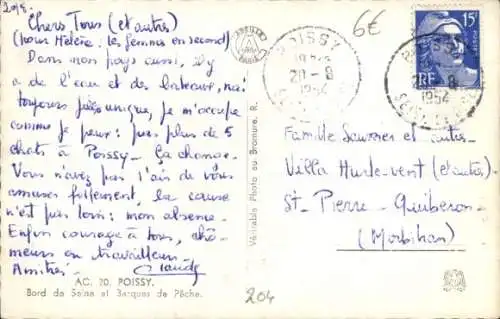 20/8.
Chers Tous (et autres)
(pour Hélène: les femmes en second)
Dans mon pays aussi, il y
a de l'eau et des bateaux, mais
toujours je m'occupe
comme je peux: pas plus de 5
chats à Poissy - Ça change.
Vous n'avez pas l'air de vous
amuser follement, la cause
n'est pas loin: mon absence.
Enfin courage à tous, chô-
meurs en travailleurs.
Amitiés. Claude
AC. 20. POISSY.
Bord de Seine et Barques de Pêche.
Véritable Photo au Bromure. R.
6€
POISSY
20-8
1954
15F
RF
20-8
1954
Famille et autres
Villa Hurle-vent (et autres)
St-Pierre-Quiberon
(Morbihan)
204